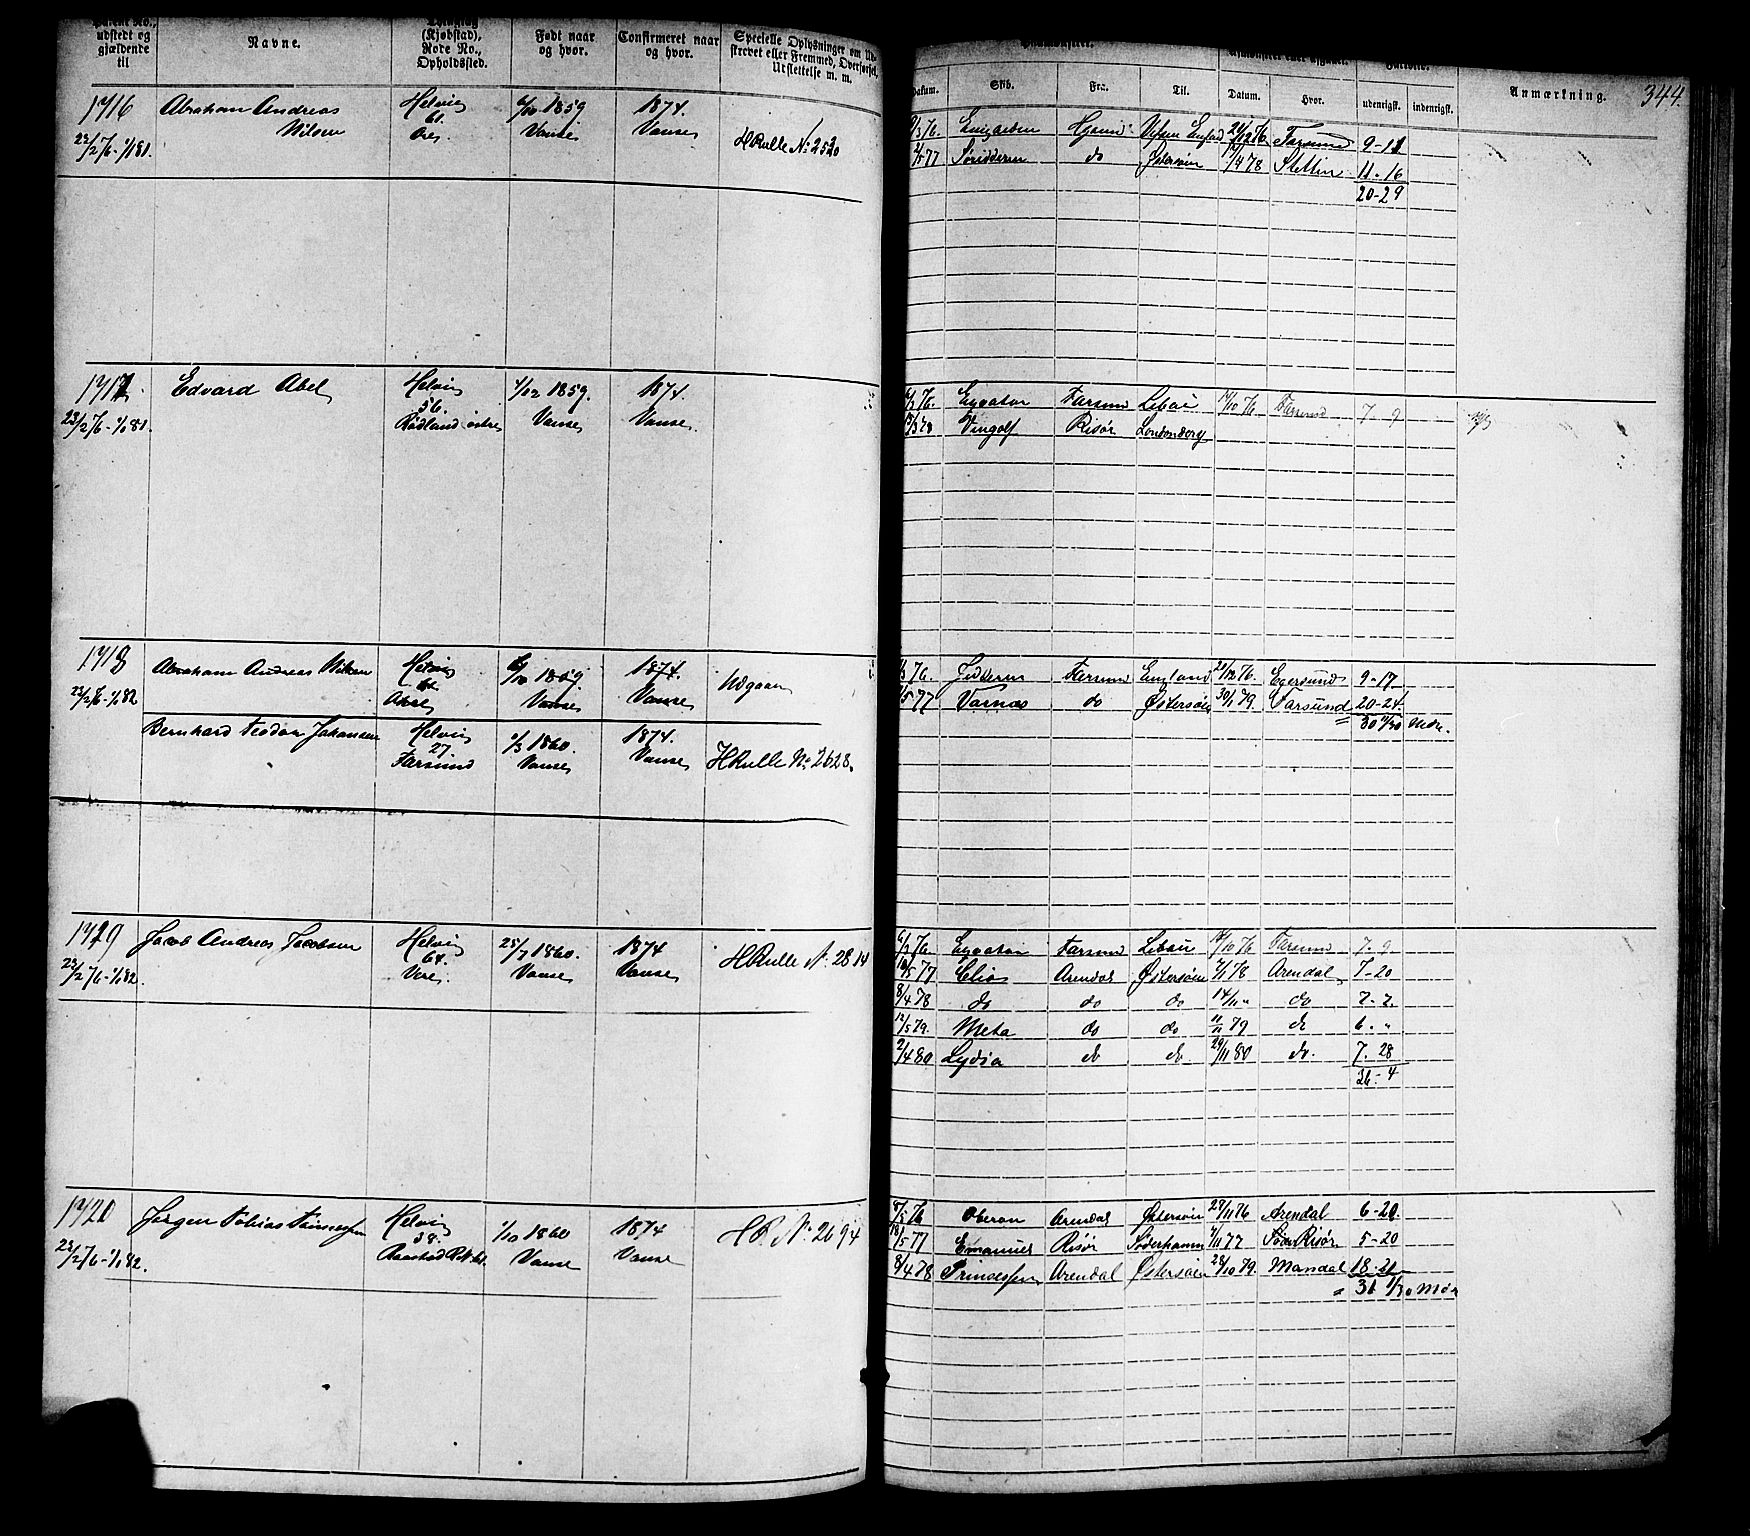 udstedt og
gjældende
til
Navne.
(Kjøbstad),
Rode No.,
Opholdssted.
Født naar
og hvor.
Confirmeret naar
og hvor.
Specielle Oplysninger om
strevet eller Fremmed, Overførsel,
Udslettelse m. m.
Datum.
Skib.
Fra.
Til.
Datum.
Hvor.
udenrigsk.
indenrigsk.
Anmærkning.
344.
1716
22/2 76 - 1/1 81.
Abraham Andreas
Nilsen
Helvig
61.
Ore.
1859.
Vanse
1874.
Vanse
HRulle No. 2520
/3 76.
Hgsund
76.
Farsund
9-11
/5 77
do
Østersøen
/4 78
Stettin
11-16
20-29
1717
23/2 76 - 1/1 81.
Edvard Abel
Helvig
56.
Rødland østre
/12 1859.
Vanse
1874.
Vanse.
/3 76.
Farsund
Libau
/10 76
Farsund
7-9
/3 78
Vingolf
Risør
Londonderry
1718
23/2 76 - 1/1 82
Abraham Andreas Nilsen
Helvig
Ore
/10 1859.
Vanse
1874.
Vanse
Udgaar
/3 76.
Jedderen
Farsund
England
21/12 76.
Egersund
9-17
/5 77
Varnæs
do
Østersøen
30/1 79.
Farsund
20-24
30 11/30 Mdr.
Bernhard Teodor Johansen
Helvig
27.
Farsund
/3 1860.
Vanse
1874.
Vanse
HRulle No. 2628.
1719
23/2 76 - 1/1 82.
Jacob Andreas Jacobsen
Helvig
64.
Vere.
25/7 1860.
Vanse
1874
Vanse
HRulle No. 2814
6/3 76.
Farsund
Libau
/10 76
Farsund
7-9
/5 77
Clio
Arendal
Østersøen
/1 78
Arendal
7-20
8/4 78
do
do
do
14/11 "
do
7-7.
12/5 79.
Meta
do
do
11/11 79
do
6. "
2/4 80
Lydia
do
do.
29/11 80
do.
7. 28
36-4
1720
23/2 76 - 1/1 82.
Jørgen Tobias Tønnessen
Helvig
38.
1/10 1860
Vanse
1874
Vanse
HR No. 2694
8/5 76
Oberon
Arendal
Østersøen
28/11 76
Arendal
6-20.
18/5 77
Emanuel
Risør
Söderhamn
/11 77
Risør
5-20
8/4 78
Princessen
Arendal
Østersøen
28/10 79.
Mandal
18-21
31 1/30 Mdr